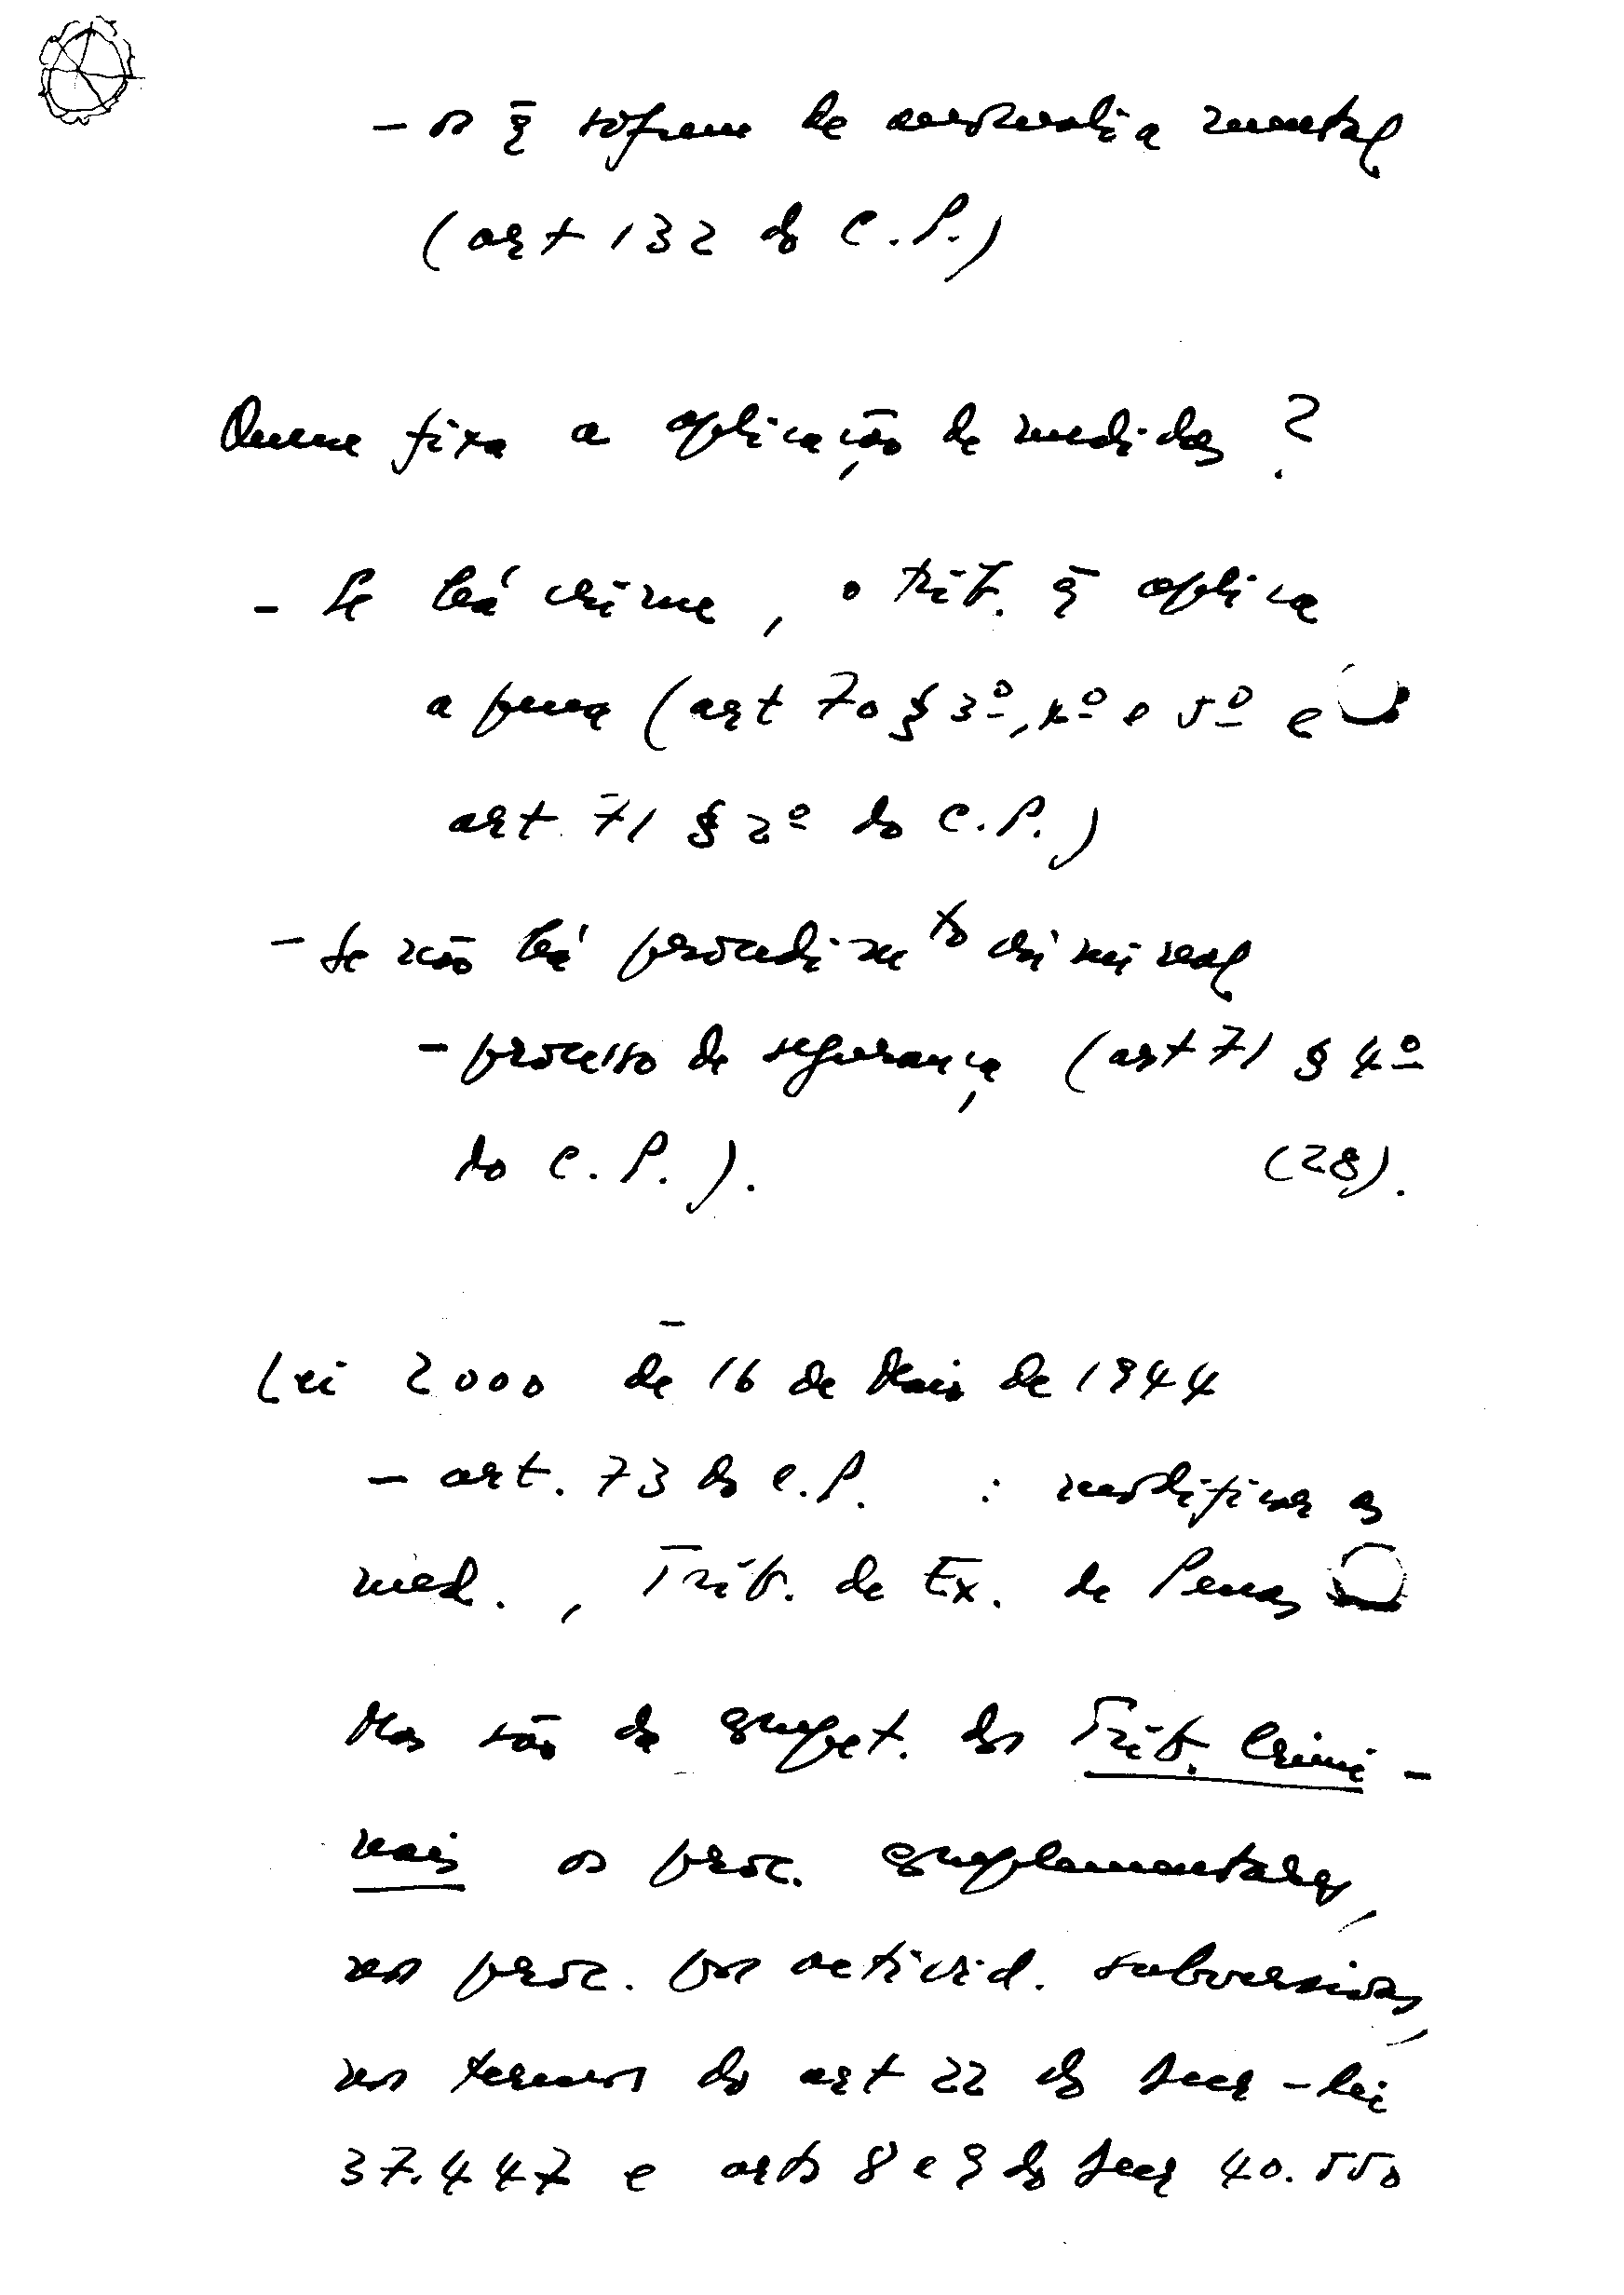 - os q̄ sofrem de anomalia mental
(art 132 do C.P.)
Quem fixa a aplicação de medidas?
- Se há crime, o trib. q̄ aplica
a pena (art 70 § 3º, 4º e 5º e
art. 71 § 2º do C.P.)
- Se não há procedimto criminal
- processo de segurança (art 71 § 4º
do C.P.). (28).
Lei 2000 de 16 de Maio de 1944
- art. 73 do C.P. : modificar as
med., Trib. de Ex. de Penas
Mas são da compet. dos Trib. Crimi-
nais os proc. complementares,
nos proc. por activid. subversivas,
nos termos do art 22 do Decr-lei
37.447 e arts 8 e 9 do Decr 40.550